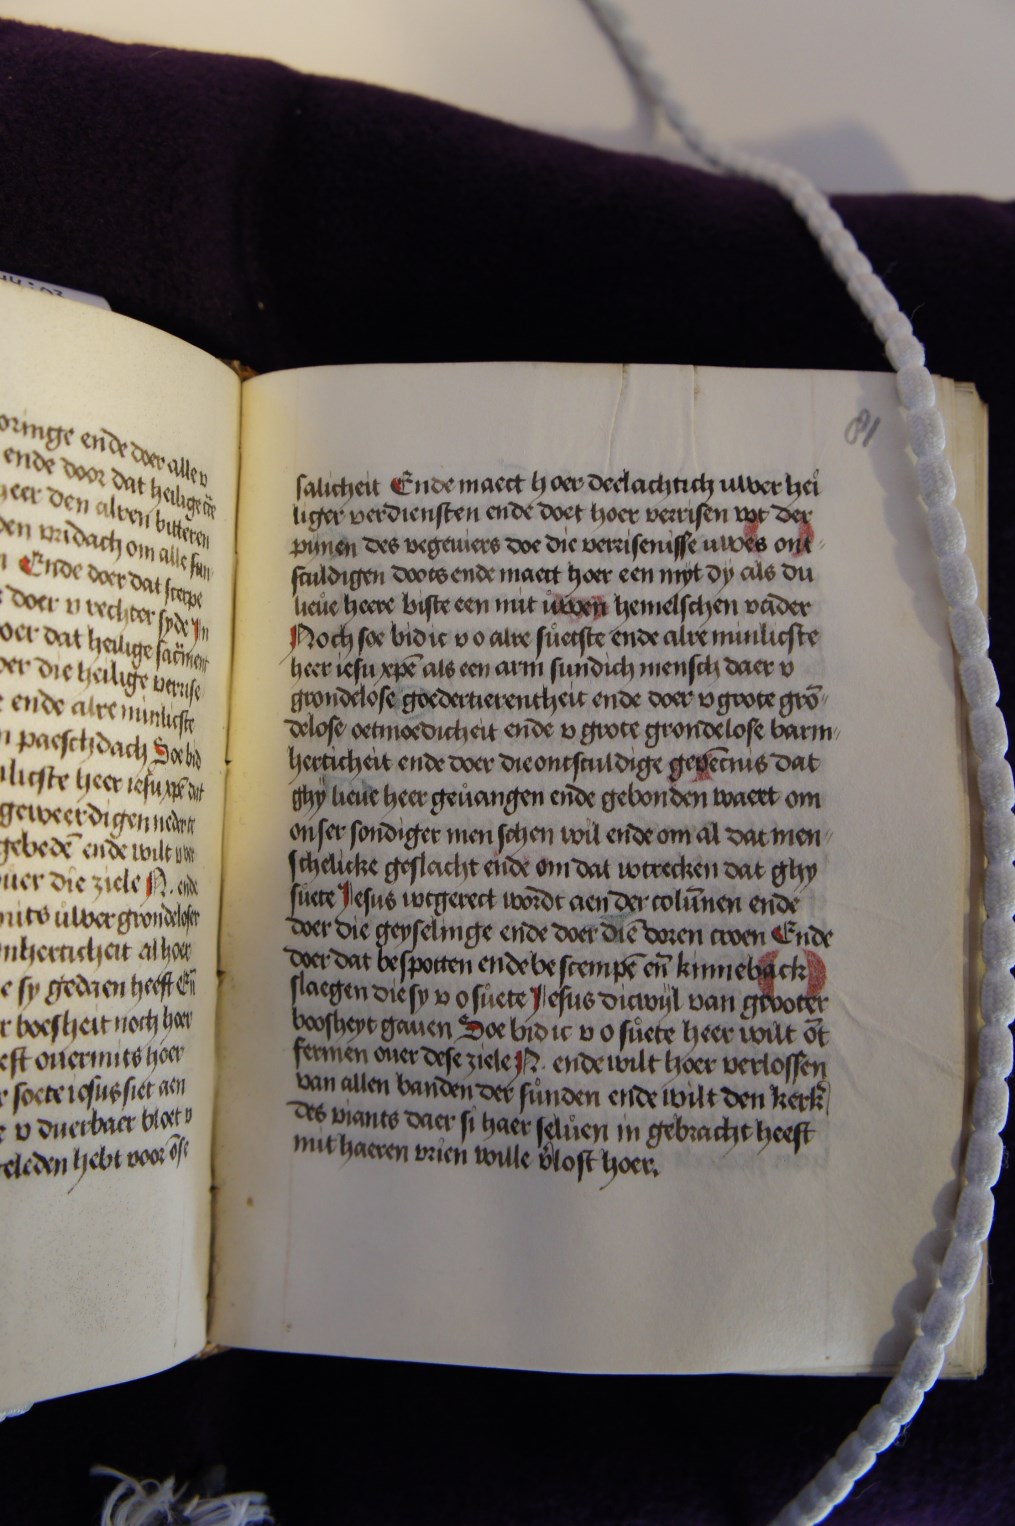 oringe ende doer alle v
ende door dat heilige
heer den alren bitteren
den vridach om alle sun
Ende doer dat scerpe
doer v rechter syde In
oer dat heilige sacͫment
oer die heilige verrise
ende alre minlicste
n paeschdach Soe bid
nlicste heer iesu xp̄e dat
geweerdigen neder te
gebedē ende wilt v
uer die ziele N. ende
mits uwer grondeloser
mherticheit al hoer
e sy gedaen heeft En̄
r boesheit noch hoer
eeft ouermits hoer
r soete iesus siet aen
e v duerbaer bloet v
eleden hebt voor ōse
81
salicheit Ende maect hoer deelachtich uwer hei
liger verdiensten ende doet hoer verrisen wt der
pijnen des vegeuiers doe die verrisenisse uwes ont-
sculdigen doots ende maect hoer een myt dy als du
lieue heere biste een mit uwen hemelschen vader
Noch soe bid ic v o alre sůetste ende alre minlicste
heer iesu xpē als een arm sundich mensch daer v
grondelose goedertierentheit ende doer v groote grō-
delose oetmoedicheit ende v grote grondelose barm-
herticheit ende doer die ontsculdige gevēcnis dat
ghy lieue heer geuangen ende gebonden waert om
onser sondiger menschen wil ende om al dat men-
schelicke geslacht ende om dat wtrecken dat ghy
sůete Jesus wtgerect wordt aen der colūnen ende
doer die geyselinge ende doer diē doren croen Ende
doer dat bespotten ende bescempē en̄ kinneback
slaegen die sy v o sůete Jesus dicwijl van grooter
boosheyt gauen Soe bid ic v o sůete heer wilt ōt
fermen ouer dese ziele N. ende wilt hoer verlossen
van allen banden der sůnden ende wilt den kerk̄
des viants daer si haer seluen in gebracht heeft
mit haeren vrien wille v̄lost hoer.